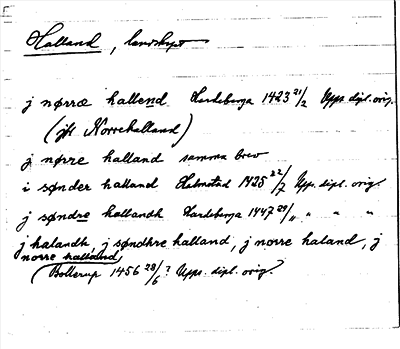 Halland, landskap
j nørræ hallend Hardeberga 1423 21/2 Upps. dipl. orig.
(jfr Norrehalland)
j nørre halland samma brev
i sønder halland Halmstad 1425 22/7 Upps. dipl. orig.
j søndre hallandh Hardeberga 1447 29/11 " " "
j halandh, j søndhre halland, j norre haland, j
norre halland
(Bollerup 1456 28/6? Upps. dipl. orig.